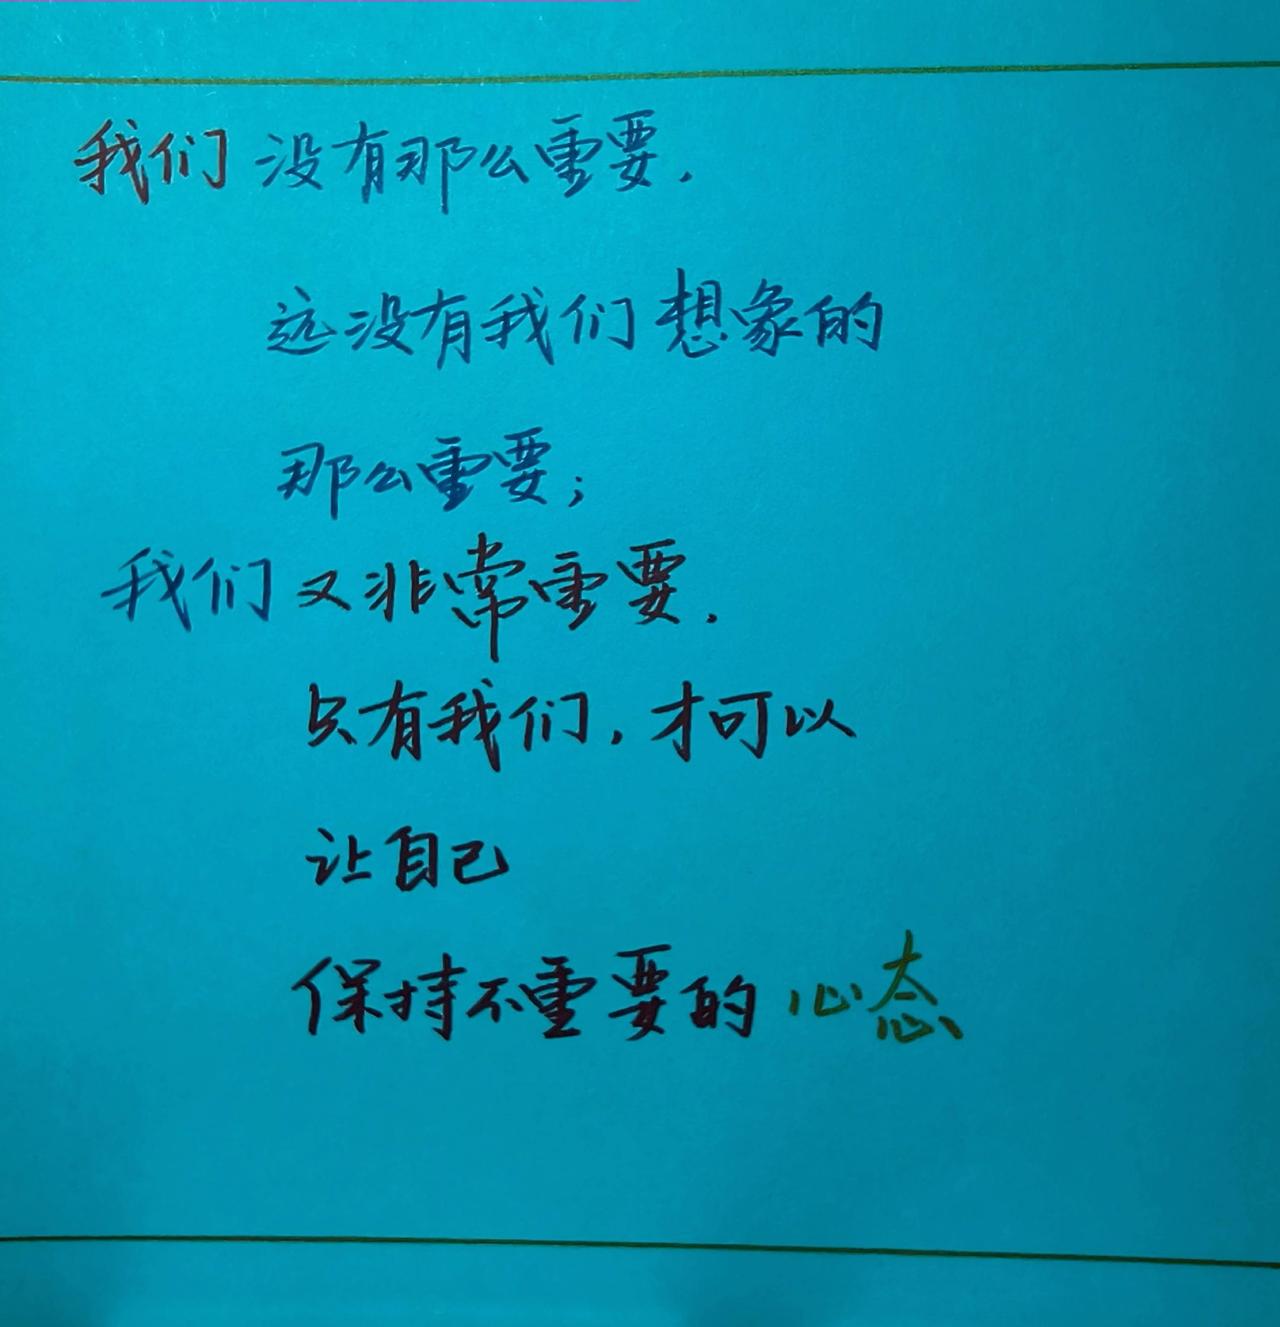 我们没有那么重要.
远没有我们想象的
那么重要;
我们又非常重要.
只有我们,才可以
让自己
保持不重要的心态